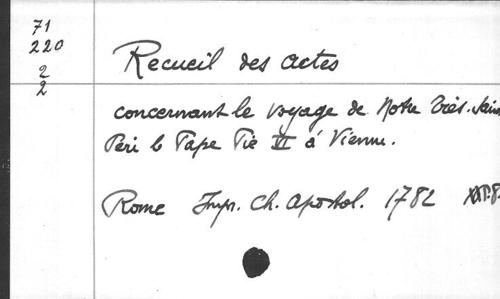 71
220
2
2
Recueil des actes
concernant le voyage de Notre Très-Sain
Péri le Pape Pie VI à Vienne.
Rome Impr. Ch. Apostol. 1782